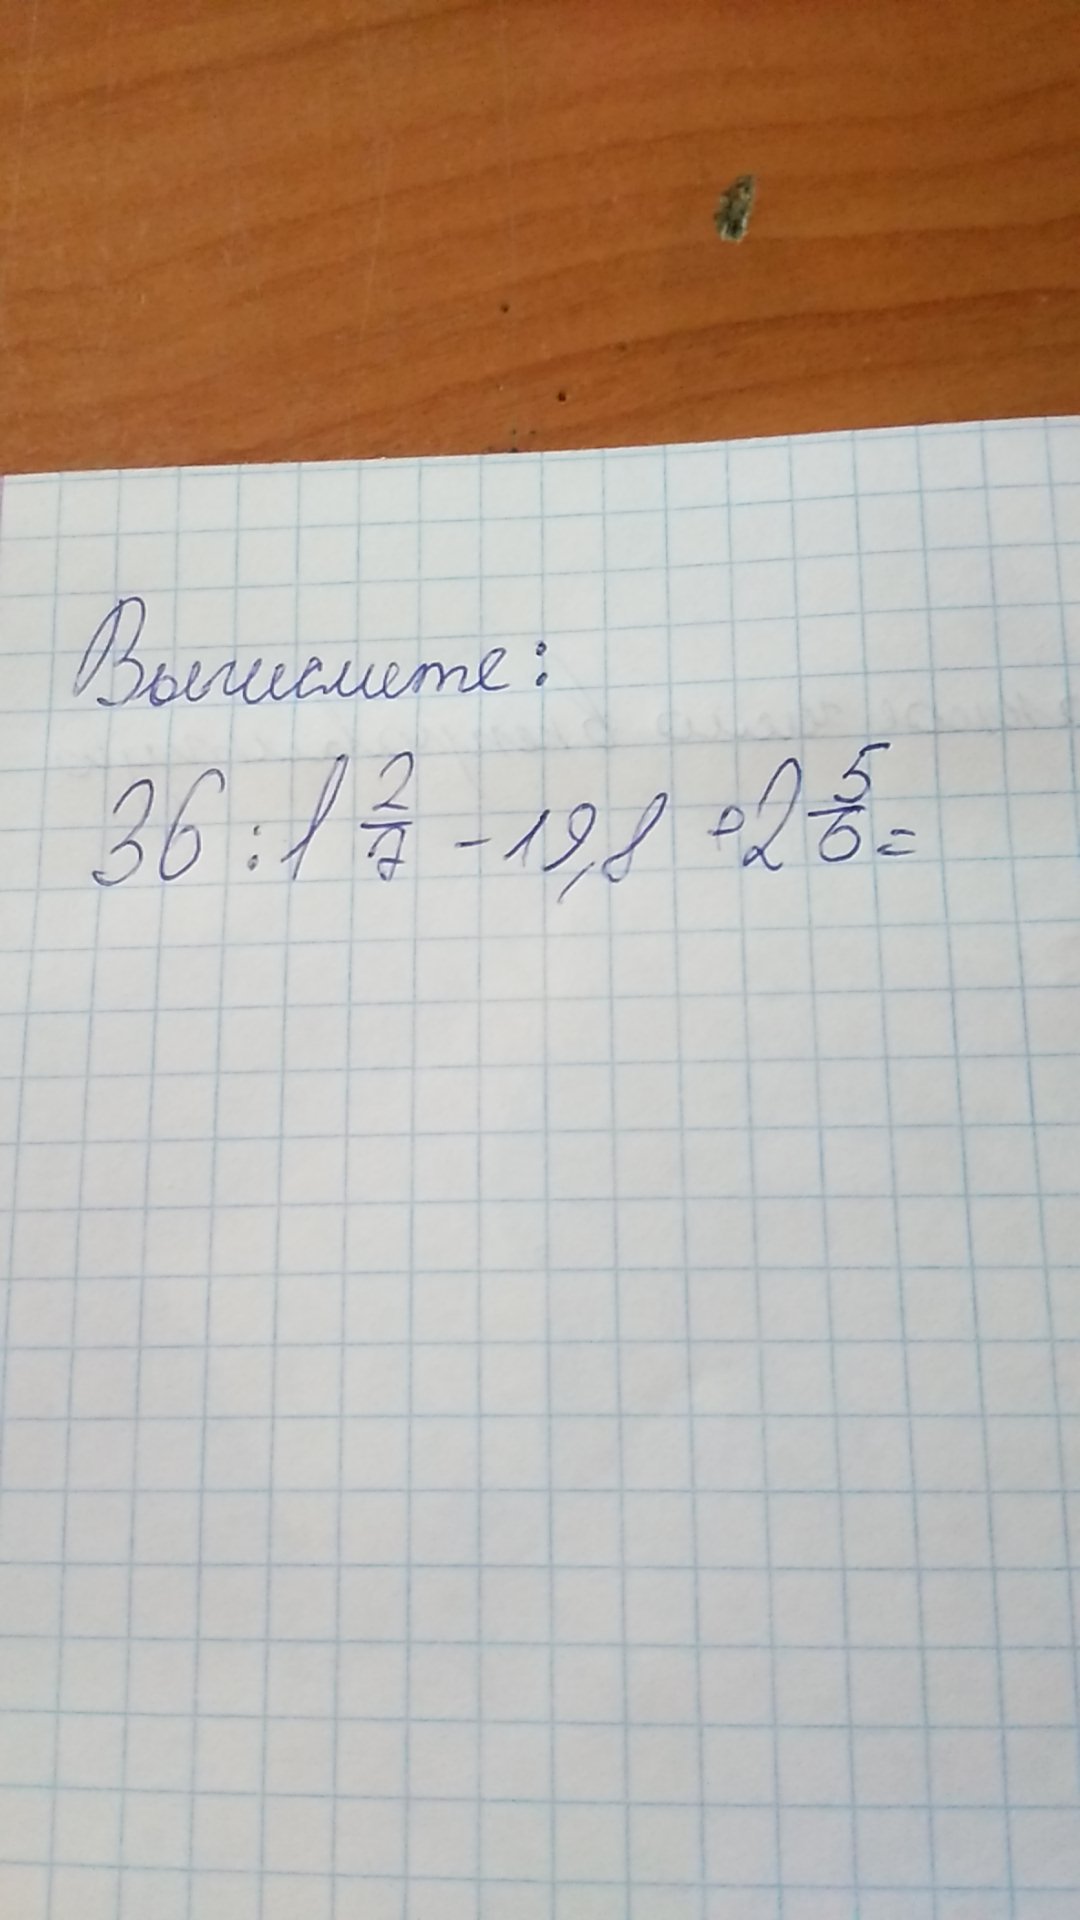 Вычислите:
36 : 1 2/7 - 19,8 · 2 5/6 =